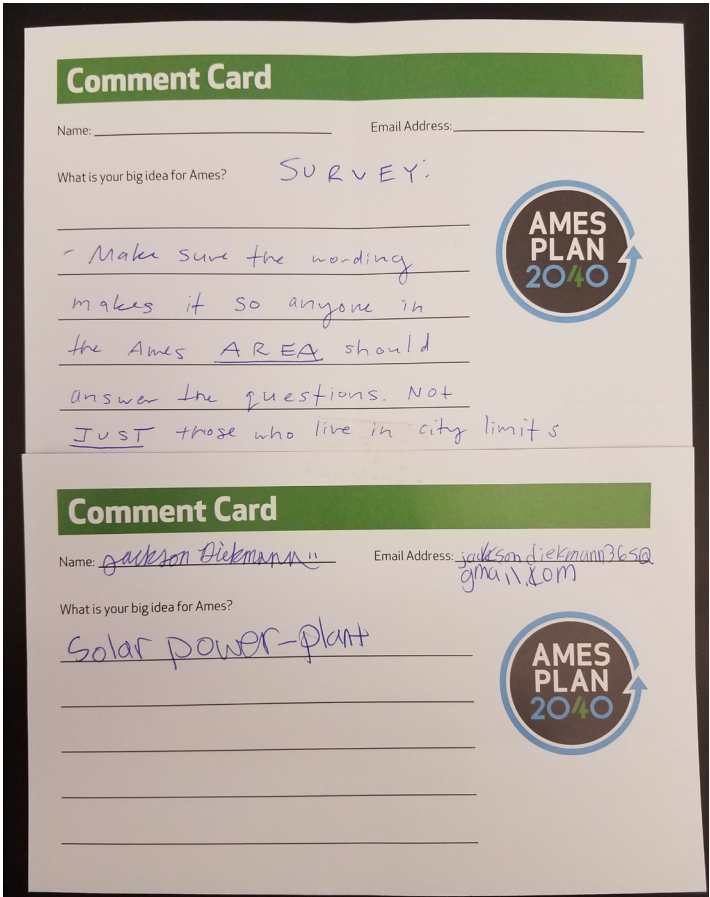 Comment Card
Name: Email Address:
What is your big idea for Ames? SURVEY:
AMES
PLAN
2040
- Make sure the wording
makes it so anyone in
the Ames AREA should
answer the questions. Not
JUST those who live in city limits
Comment Card
Name: Jackson Diekmann Email Address: jacksondiekmann365@
gmail.com
What is your big idea for Ames?
Solar power-plant
AMES
PLAN
2040